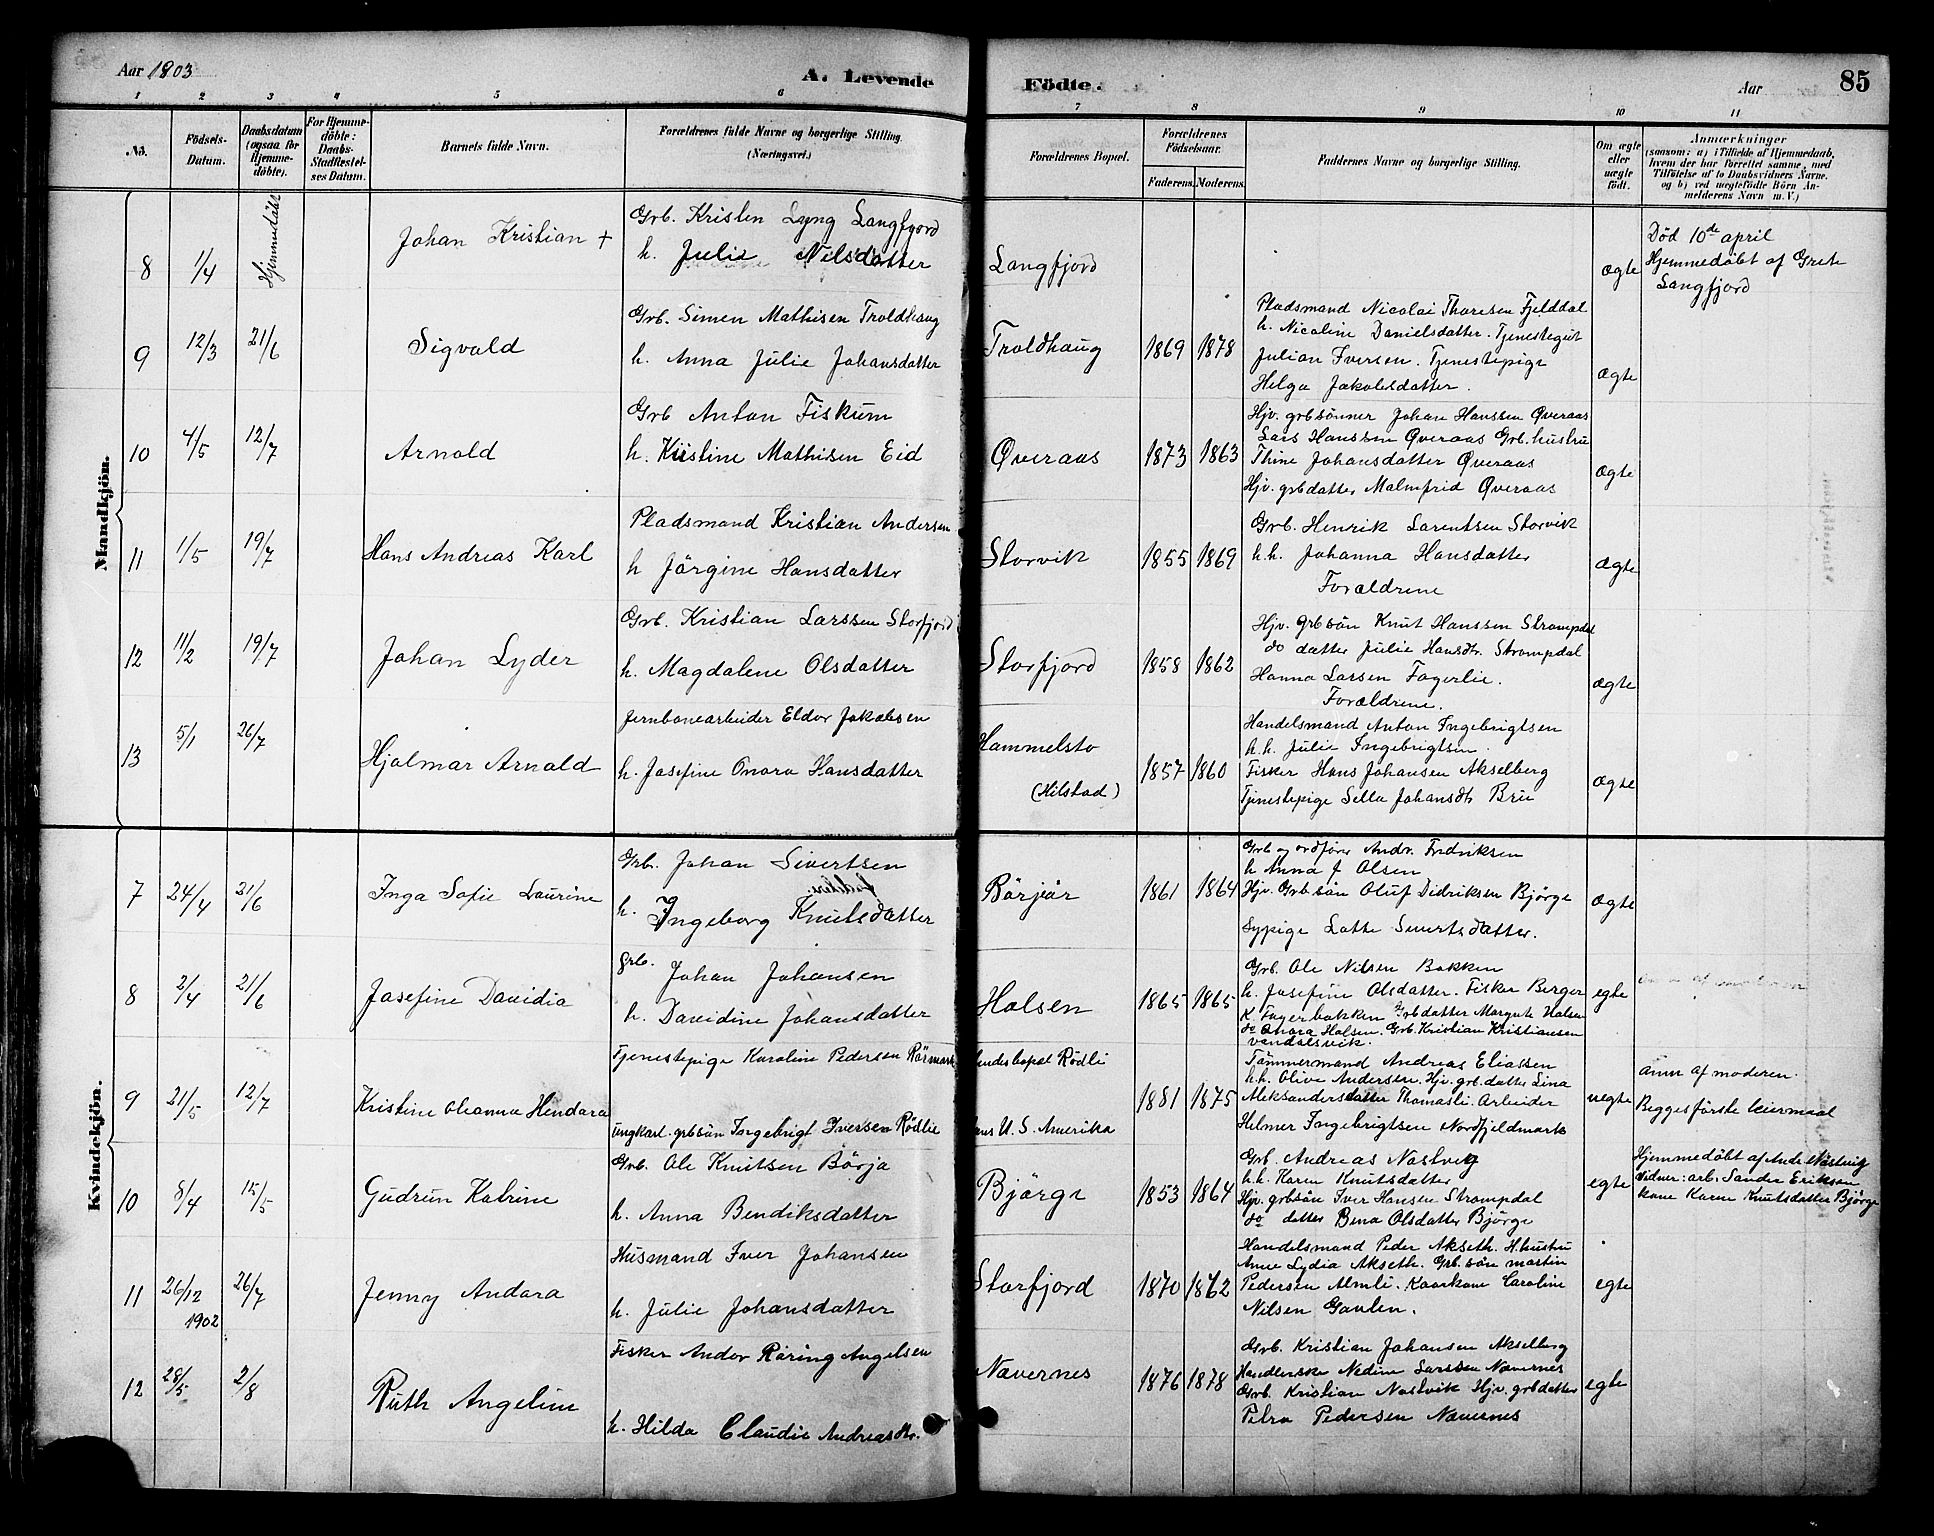 Aar 1903
A. Levende
Födte.
Aar
85
1 2 3 4 5 6 7 8 9 10 11
No.
Födsels-Datum.
Daabsdatum (ogsaa for Hjemmedöbte).
For Hjemmedöbte: Daabs-Stadfæstelses Datum.
Barnets fulde Navn.
Forældrenes fulde Navne og borgerlige Stilling. (Næringsvei.)
Forældrenes Bopæl.
Forældrenes Födselsaar.
Faderens. Moderens.
Faddernes Navne og borgerlige Stilling.
Om ægte eller uægte födt.
Anmærkninger
(saasom: a) i Tilfælde af Hjemmedaab, hvem der har forrettet samme, med Tilföielse af to Daabsvidners Navne. og b) ved uægtefödte Börn Anmelderens Navn m. V.)
Mandkjön.
8 1/4 Hjemmedöbt Johan Kristian +
Grb. Kristen Lyng Langfjord
h. Julie Nilsdatter
Langfjord
ægte
Död 10de april
Hjemmedöbt af Grete
Langfjord
9 12/3 21/6 Sigvald
Grb. Simen Mathisen Troldhaug
h. Anna Julie Johansdatter
Troldhaug 1869 1878
Pladsmand Nicolai Thoresen Fjelddal
h. Nicoline Danielsdatter. Tjenestegut
Julian Iversen. Tjenestepige
Helga Jakobsdatter.
ægte
10 4/5 12/7 Arnold
Grb Anton Fiskum
h. Kristine Mathisen Eid
Øveraas 1873 1863
Hjv. grbsönner Johan Hanssen Øveraas
Lars Hanssen Øveraas Grb. hustru
Thine Johansdatter Øveraas
Hjv. grbdatter Malmfrid Øveraas
ægte
11 1/5 19/7 Hans Andreas Karl
Pladsmand Kristian Andersen
h Jörgine Hansdatter
Storvik 1855 1869
Grb. Henrik Larentsen Storvik
h.h. Johanna Hansdatter
Forældrene
ægte
12 11/2 19/7 Johan Lyder
Grb. Kristian Larssen Storfjord
h. Magdalene Olsdatter
Storfjord 1858 1862
Hjv. grbsön Knut Hanssen Strompdal
do datter Julie Hansdtr. Strompdal
Hanna Larsen Fagerlie.
Forældrene.
ægte
13 5/1 26/7 Hjalmar Arnold
Jernbanearbeider Eldor Jakobsen
h. Josefine Onara Hansdatter
Hammelsto
(Hilstad) 1857 1860
Handelsmand Anton Ingebrigtsen
h.h. Julie Ingebrigtsen.
Fisker Hans Johansen Akselberg
Tjenestepige Sella Johansdtr Bru
ægte
Kvindekjön.
7 24/4 21/6 Inga Sofie Laurine
Grb. Johan Sivertsen
h. Ingeborg Knutsdatter
Börjeör 1861 1864
Grb og ordförer Andr. Fredriksen
h Anna J Olsen
Hjv. Grb sön Oluf Didriksen Bjørge
Sypige Lotte Sivertsdatter.
ægte
8 2/4 21/6 Josefine Davidia
grb. Johan Johansen
h. Davidine Johansdatter
Holsen 1865 1865
Grb. Ole Nilsen Bakken
h. Josefine Olsdatter. Fisker Berger
K. Fagerbakken Grbdatter Margrete Holsen
do Onara Holsen. Grb. Kristian Kristiansen
Vandalsvik.
egte
9 21/5 12/7 Kristine Oleanna Hendara
Tjenestepige Karoline Pedersen Rörmark
Ungkarl. grbsön Ingebrigt Iversen Rödlie
hendes bopæl Rödli
hans U.S. Amerika 1881 1875
Tömmermand Andreas Eliassen
h.h. Olive Andersen. Hjv. grb. datter Lina
Aleksandersdatter Thomasli. Arbeider
Helmer Ingebrigtsen Nordfjeldmark
uegte
anm af moderen.
Begges förste leiermaal
10 8/4 15/5 Gudrun Katrine
Grb. Ole Knutsen Börja
h. Anna Bendiksdatter
Bjørge 1853 1864
Grb. Andreas Nastveg
h.h. Karen Knutsdatter
Hjv. grbsön Iver Hansen Strompdal
do datter Bena Olsdatter Bjørge
egte
Hjemmedöbt af Andr. Nastvig
Vidner: arb. Sander Eriksen
kone Karen Knutsdatter Bjørge
11 26/12 1902 26/7 Jenny Andora
Husmand Iver Johansen
h. Julie Johansdatter
Storfjord 1870 1862
Handelsmand Peder Akseth. H. hustru
Anne Lydia Akseth. Grb. sön Martin
Pedersen Almli. Kaarkone Caroline
Nilsen Gaulen.
egte
12 28/5 2/8 Ruth Angeline
Fisker Andor Röring Angelsen
h. Hilda Claudie Andreasdtr.
Nævernes 1876 1878
Grb. Kristian Johansen Akselberg
Handlerske Nedine Larssen Nævernes
Grb. Kristian Nastvik Hjv. grbdatter
Petra Pedersen Nævernes
egte